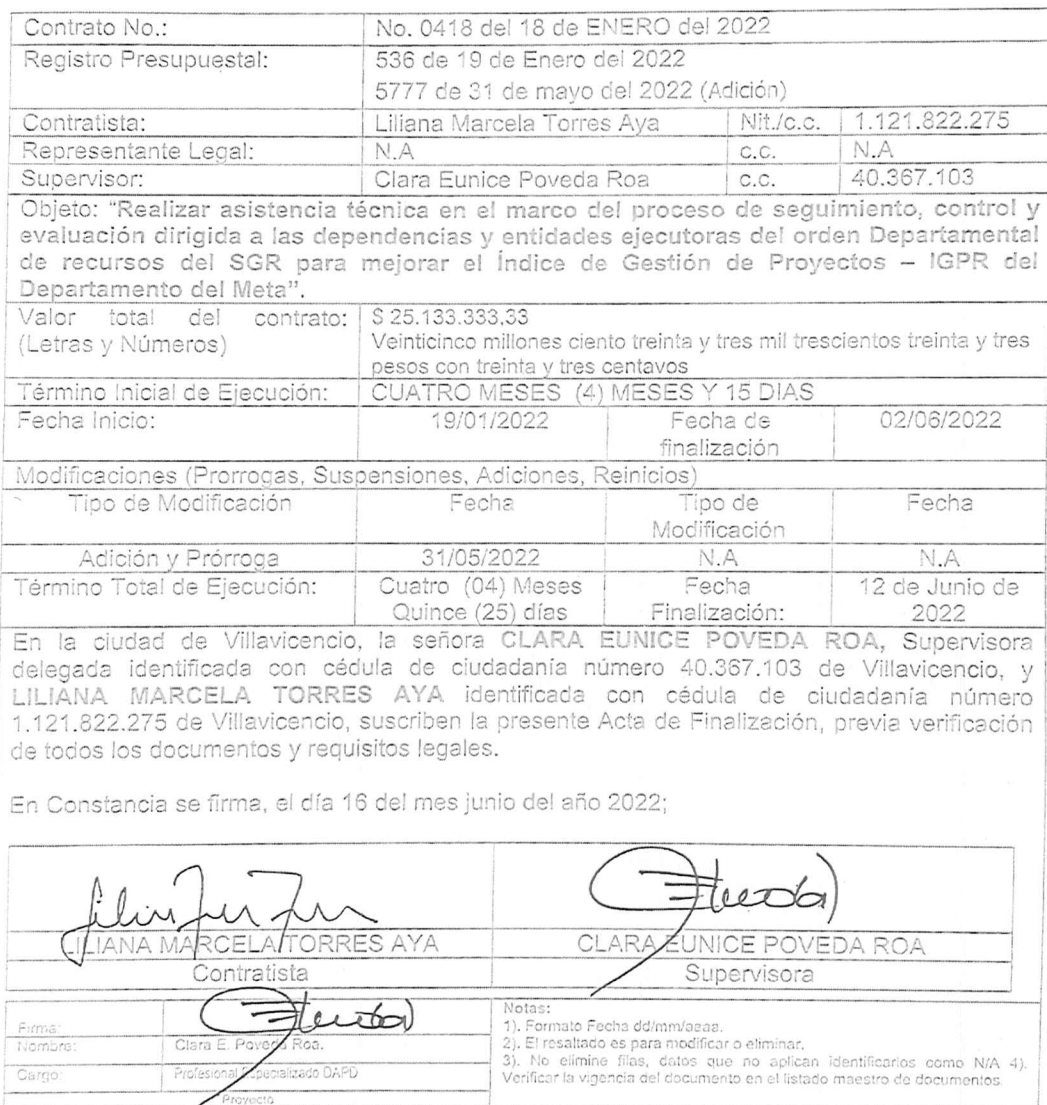 Contrato No.: No. 0418 del 18 de ENERO del 2022
Registro Presupuestal: 536 de 19 de Enero del 2022
5777 de 31 de mayo del 2022 (Adición)
Contratista: Liliana Marcela Torres Aya Nit./c.c. 1.121.822.275
Representante Legal: N.A c.c. N.A
Supervisor: Clara Eunice Poveda Roa c.c. 40.367.103
Objeto: "Realizar asistencia técnica en el marco del proceso de seguimiento, control y
evaluación dirigida a las dependencias y entidades ejecutoras del orden Departamental
de recursos del SGR para mejorar el Índice de Gestión de Proyectos – IGPR del
Departamento del Meta".
Valor total del contrato: $ 25.133.333,33
(Letras y Números) Veinticinco millones ciento treinta y tres mil trescientos treinta y tres
pesos con treinta y tres centavos
Término Inicial de Ejecución: CUATRO MESES (4) MESES Y 15 DIAS
Fecha Inicio: 19/01/2022 Fecha de 02/06/2022
finalización
Modificaciones (Prorrogas, Suspensiones, Adiciones, Reinicios)
Tipo de Modificación Fecha Tipo de Fecha
Modificación
Adición y Prórroga 31/05/2022 N.A N.A
Término Total de Ejecución: Cuatro (04) Meses Fecha 12 de Junio de
Quince (25) días Finalización: 2022
En la ciudad de Villavicencio, la señora CLARA EUNICE POVEDA ROA, Supervisora
delegada identificada con cédula de ciudadanía número 40.367.103 de Villavicencio, y
LILIANA MARCELA TORRES AYA identificada con cédula de ciudadanía número
1.121.822.275 de Villavicencio, suscriben la presente Acta de Finalización, previa verificación
de todos los documentos y requisitos legales.
En Constancia se firma, el día 16 del mes junio del año 2022;
LILIANA MARCELA TORRES AYA CLARA EUNICE POVEDA ROA
Contratista Supervisora
Firma:
Nombre: Clara E. Poveda Roa.
Cargo: Profesional Especializado DAPD
Proyectó
Notas:
1). Formato Fecha dd/mm/aaaa.
2). El resaltado es para modificar o eliminar.
3). No elimine filas, datos que no aplican identificarlos como N/A 4).
Verificar la vigencia del documento en el listado maestro de documentos.